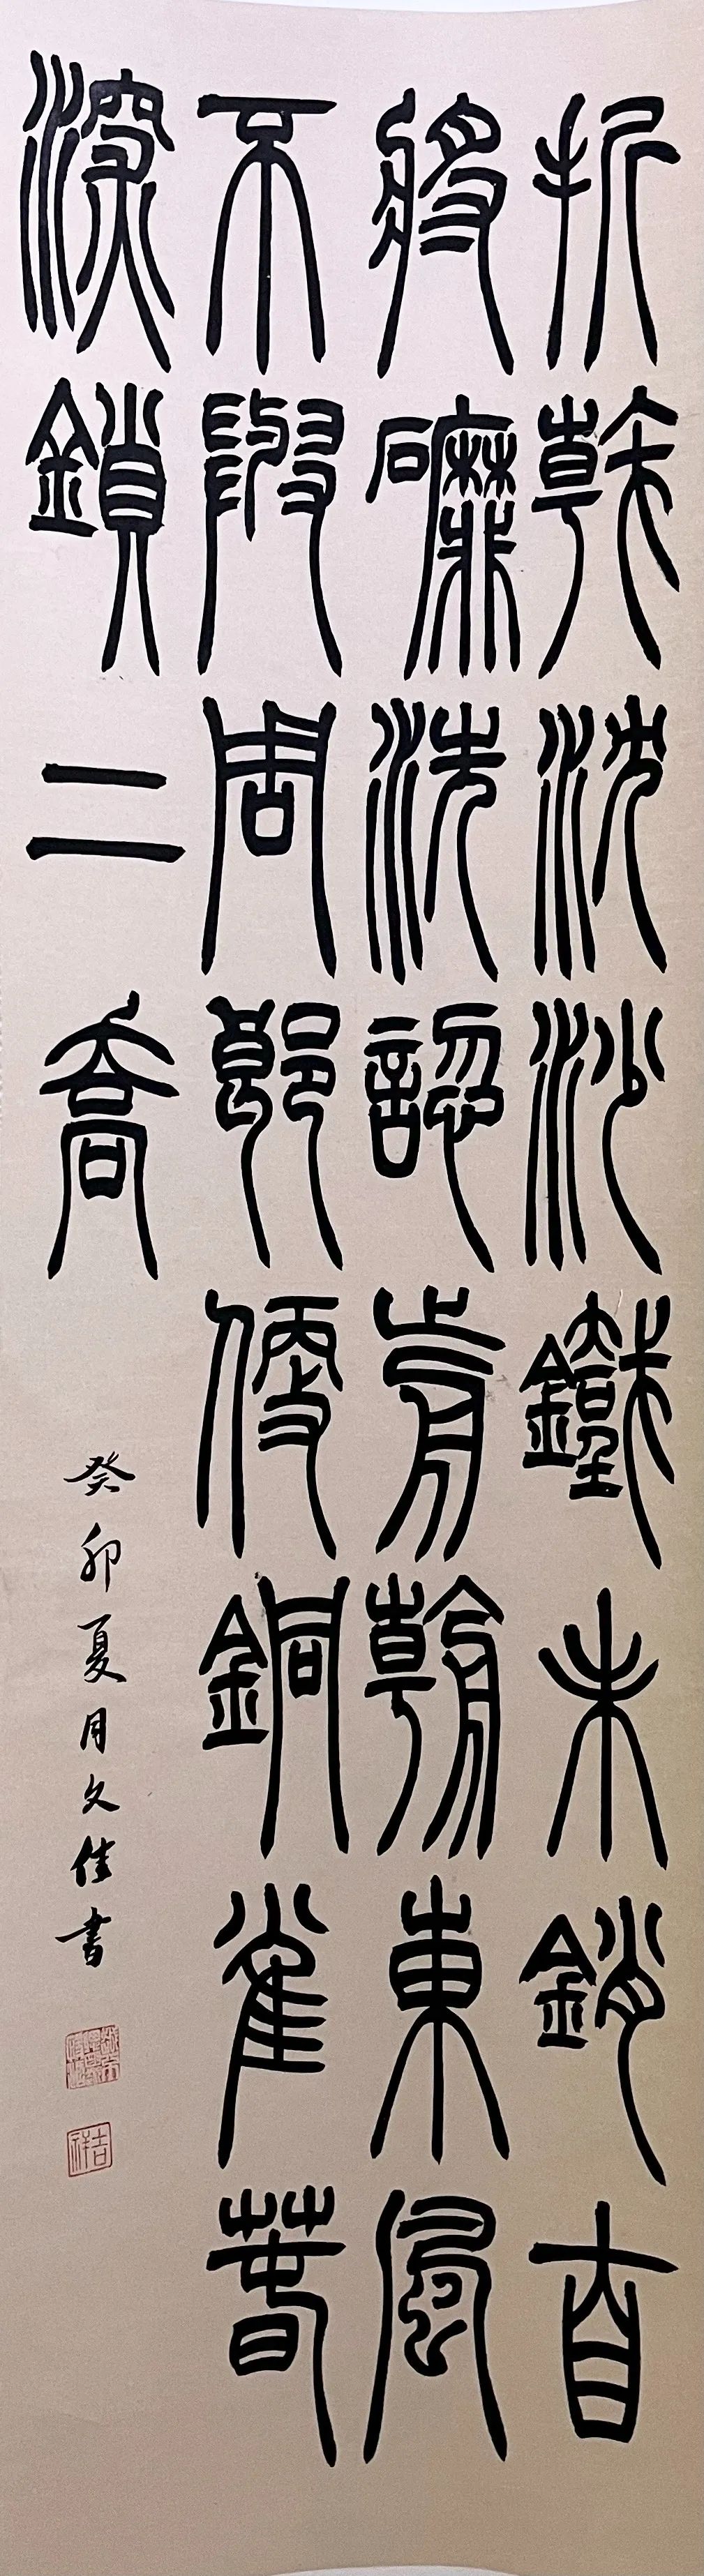 折戟沈沙鐵未銷自
將磨洗認前朝東風
不與周郎便銅雀春
深鎖二喬
癸卯夏月文佳書
吉祥